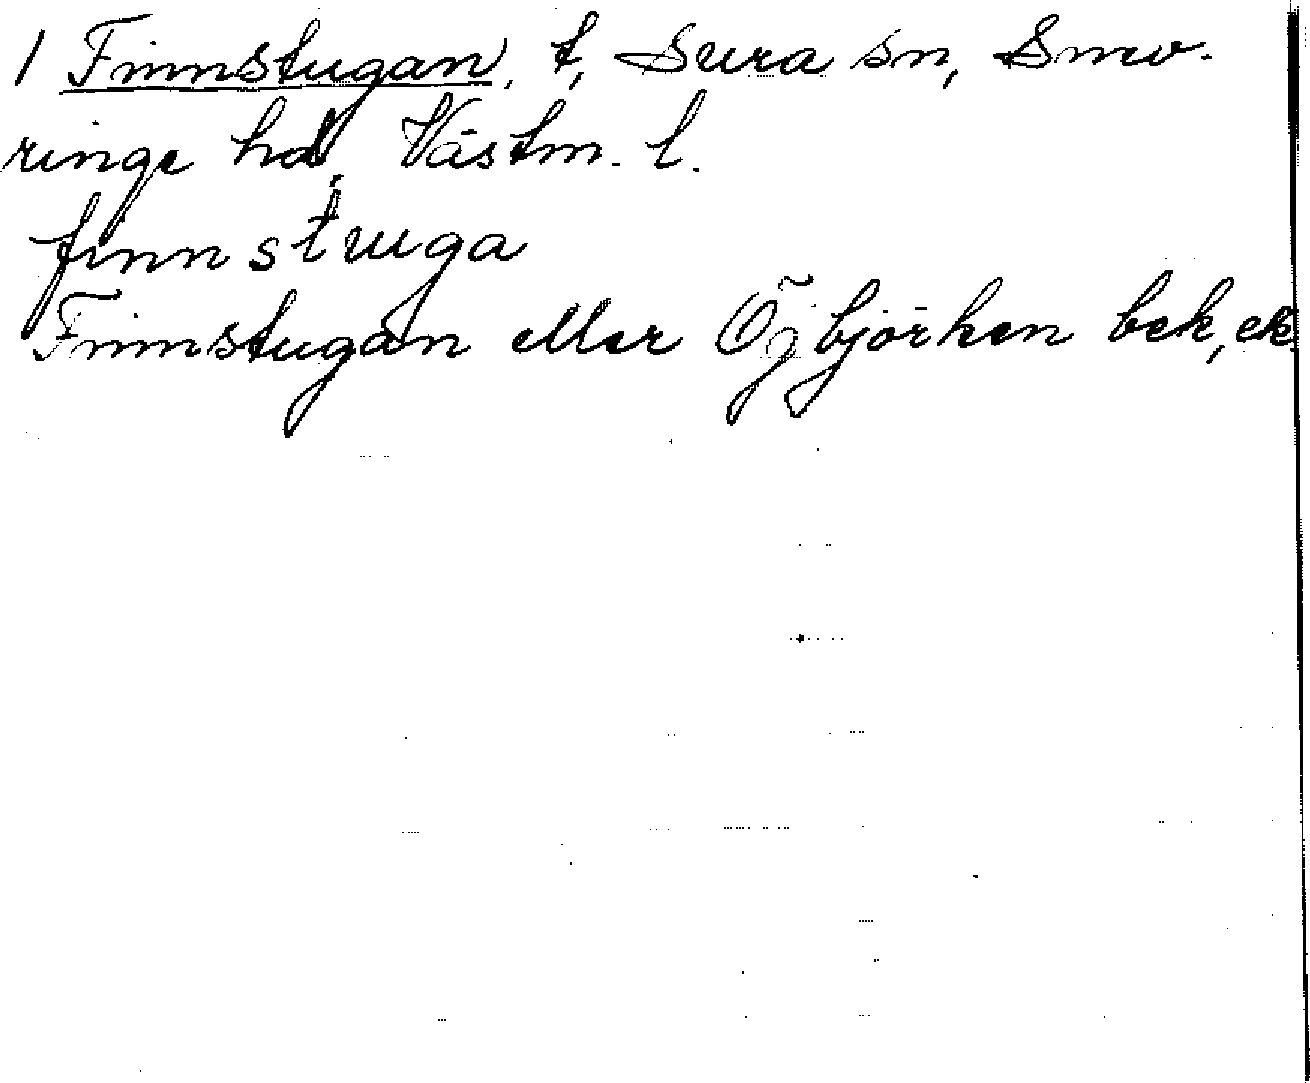 1 Finnstugan, t, Sura sn, Snev-
ringe hd, Västm. l.
finnstuga
Finnstugan eller Ögbjörken bek, ek